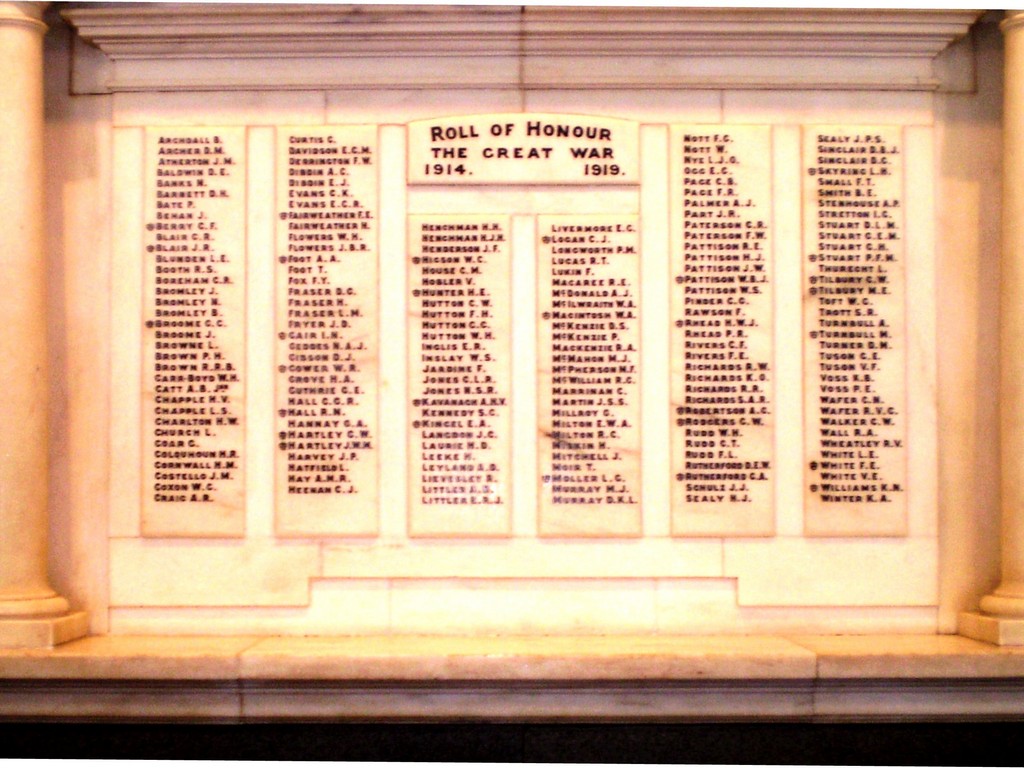 ROLL OF HONOUR
THE GREAT WAR
1914. 1919.
ARCHDALL B.
ARCHER D.M.
ATHERTON J.M.
BALDWIN D.E.
BANKS N.
BARNETT D.H.
BATE P.
BEHAN J.
BERRY C.F.
BLAIR C.R.
BLAIR J.R.
BLUNDEN L.E.
BOOTH R.S.
BOREHAM C.R.
BROMLEY J.
BROMLEY N.
BROMLEY B.
BROOME G.C.
BROOME J.
BROWNE L.
BROWN P.H.
BROWN R.R.B.
CARR-BOYD W.H.
CATT A.B. JNR
CHAPPLE H.V.
CHAPPLE L.S.
CHARLTON H.W.
CHURCH L.
COAR G.
COLQUHOUN H.R.
CORNWALL H.M.
COSTELLO J.M.
COXON W.G.
CRAIG A.R.
CURTIS C.
DAVIDSON E.C.M.
DERRINGTON F.W.
DIBDIN A.C.
DIBDIN E.J.
EVANS C.K.
EVANS E.C.R.
FAIRWEATHER F.E.
FAIRWEATHER H.
FLOWERS W.H.
FLOWERS J.B.R.
FOOT A.A.
FOOT T.
FOX F.Y.
FRASER D.G.
FRASER H.
FRASER L.M.
FRYER J.D.
GAIR I.N.
GEDDES N.A.J.
GIBSON D.J.
GOWER W.R.
GROVE H.A.
GUTHRIE G.E.
HALL C.G.R.
HALL R.N.
HANNAY G.A.
HARTLEY G.W.
HARTLEY J.W.H.
HARVEY J.P.
HATFIELD L.
HAY A.M.R.
HEENAN C.J.
HENCHMAN H.H.
HENCHMAN H.J.H.
HENDERSON J.F.
HIGSON W.C.
HOUSE C.M.
HOBLER V.
HUNTER H.E.
HUTTON C.W.
HUTTON F.H.
HUTTON G.C.
HUTTON W.H.
INGLIS E.R.
INSLAY W.S.
JARDINE F.
JONES G.L.R.
JONES N.S.R.
KAVANAGH A.H.V.
KENNEDY S.G.
KINGEL E.A.
LANGDON J.C.
LAURIE H.D.
LEEKE H.
LEYLAND A.D.
LIEVESLEY R.
LITTLER A.D.
LITTLER E.R.J.
LIVERMORE E.C.
LOGAN C.J.
LONGWORTH P.M.
LUCAS R.T.
LUKIN F.
MACAREE R.E.
MCDONALD A.J.
MCILWRAITH W.A.
MACINTOSH W.A.
MCKENZIE D.S.
MCKENZIE P.
MACKENZIE R.A.
MCMAHON M.J.
MCPHERSON M.F.
MCWILLIAM R.G.
MARRINAN C.
MARTIN J.S.S.
MILLROY G.
MILTON E.W.A.
MILTON R.C.
MISKIN H.
MITCHELL J.
MOIR T.
MOLLER L.G.
MURRAY M.J.
MURRAY D.K.L.
NOTT F.G.
NOTT W.
NYE L.J.G.
OGG E.G.
PAGE C.B.
PAGE F.R.
PALMER A.J.
PART J.R.
PATERSON C.R.
PATERSON F.W.
PATTISON R.E.
PATTISON H.J.
PATTISON J.W.
PATTISON W.B.J.
PATTISON W.S.
PINDER C.G.
RAWSON F.
RHEAD H.W.J.
RHEAD P.R.
RIVERS C.F.
RIVERS F.E.
RICHARDS R.W.
RICHARDS K.G.
RICHARDS R.R.
RICHARDS S.A.R.
ROBERTSON A.C.
RODGERS C.W.
RUDD W.H.
RUDD C.T.
RUDD F.L.
RUTHERFORD D.E.W.
RUTHERFORD G.A.
SCHULZ J.J.
SEALY H.J.
SEALY J.P.S.
SINCLAIR D.B.J.
SINCLAIR D.G.
SKYRING L.H.
SMALL F.T.
SMITH B.E.
STENHOUSE A.P.
STRETTON I.G.
STUART D.L.M.
STUART G.E.M.
STUART C.H.
STUART P.F.M.
THURECHT L.
TILBURY C.W.
TILBURY M.E.
TOFT W.G.
TROTT S.R.
TURNBULL A.
TURNBULL M.
TURNER D.H.
TUSON G.E.
TUSON V.F.
VOSS K.B.
VOSS P.E.
WAFER C.N.
WAFER R.V.C.
WALKER C.W.
WALL R.A.
WHEATLEY R.V.
WHITE L.E.
WHITE F.E.
WHITE V.E.
WILLIAMS K.N.
WINTER K.A.